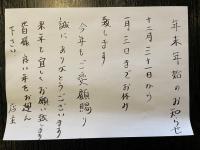 年末年始のお知らせ
十二月三十一日から
一月三日までお休み
致します
今年もご愛顧賜り
誠にありがとうございます
来年も宜しくお願い致します
皆様良い年をお迎え
下さい
店主